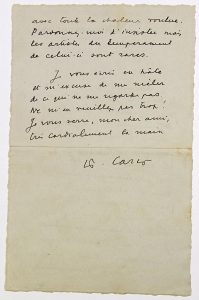 avec toute la chaleur voulue.
Pardonnez-moi d'insister mais
les artistes du tempérament
de celui-ci sont rares.
Je vous écris en hâte
et m'excuse de me mêler
de ce qui ne me regarde pas.
Ne m'en veuillez pas trop !
Je vous serre, mon cher ami,
très cordialement la main
Carco